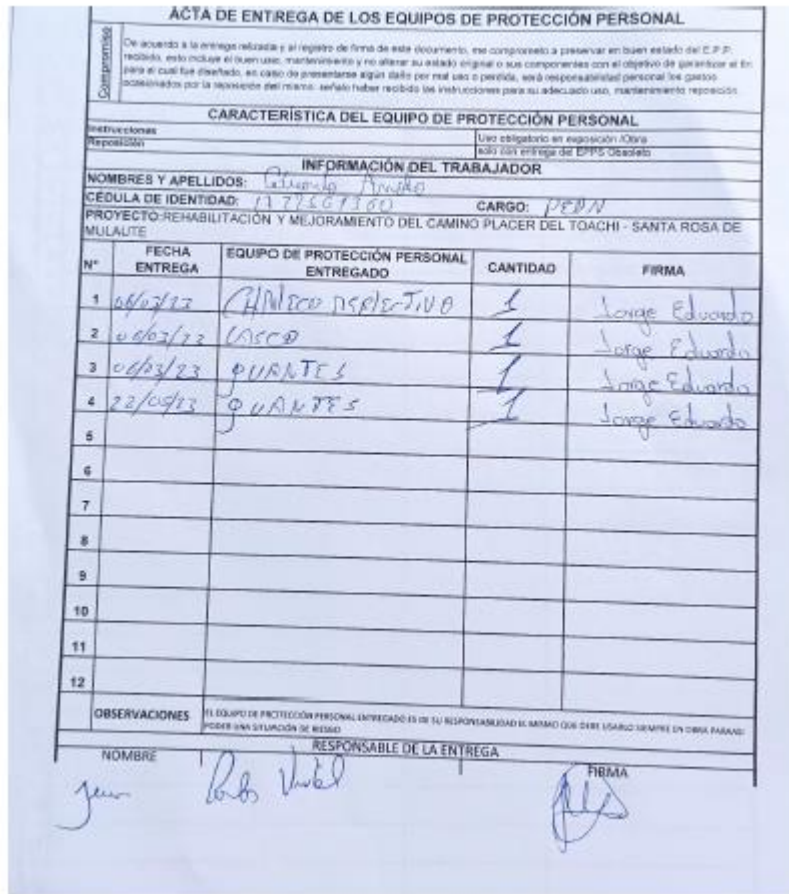 ACTA DE ENTREGA DE LOS EQUIPOS DE PROTECCIÓN PERSONAL
Compromiso
De acuerdo a la entrega relizada y al registro de firma de este documento, me comprometo a preservar en buen estado del E.P.P.
recibido, esto incluye el buen uso, mantenimiento y no alterar su estado original o sus componentes con el objetivo de garantizar el fin
para el cual fue diseñado, en caso de presentarse algún daño por mal uso o perdida, será responsabilidad personal los gastos
ocasionados por la reposición del mismo. señalo haber recibido las instrucciones para su adecuado uso, mantenimiento reposición
CARACTERÍSTICA DEL EQUIPO DE PROTECCIÓN PERSONAL
Instrucciones Uso obligatorio en exposición /Obra
Reposición solo con entrega del EPPS Obsoleto
INFORMACIÓN DEL TRABAJADOR
NOMBRES Y APELLIDOS: Eduardo
CÉDULA DE IDENTIDAD: CARGO: PEON
PROYECTO:REHABILITACIÓN Y MEJORAMIENTO DEL CAMINO PLACER DEL TOACHI - SANTA ROSA DE
MULAUTE
N° FECHA ENTREGA EQUIPO DE PROTECCIÓN PERSONAL ENTREGADO CANTIDAD FIRMA
1 06/03/23 CHALECO REFLECTIVO 1 Jorge Eduardo
2 06/03/23 CASCO 1 Jorge Eduardo
3 06/03/23 GUANTES 1 Jorge Eduardo
4 22/05/23 GUANTES 1 Jorge Eduardo
5
6
7
8
9
10
11
12
OBSERVACIONES EL EQUIPO DE PROTECCIÓN PERSONAL ENTREGADO ES DE SU RESPONSABILIDAD EL MISMO QUE DEBE USARLO SIEMPRE EN OBRA
PODER UNA SITUACIÓN DE RIESGO
RESPONSABLE DE LA ENTREGA
NOMBRE FIRMA